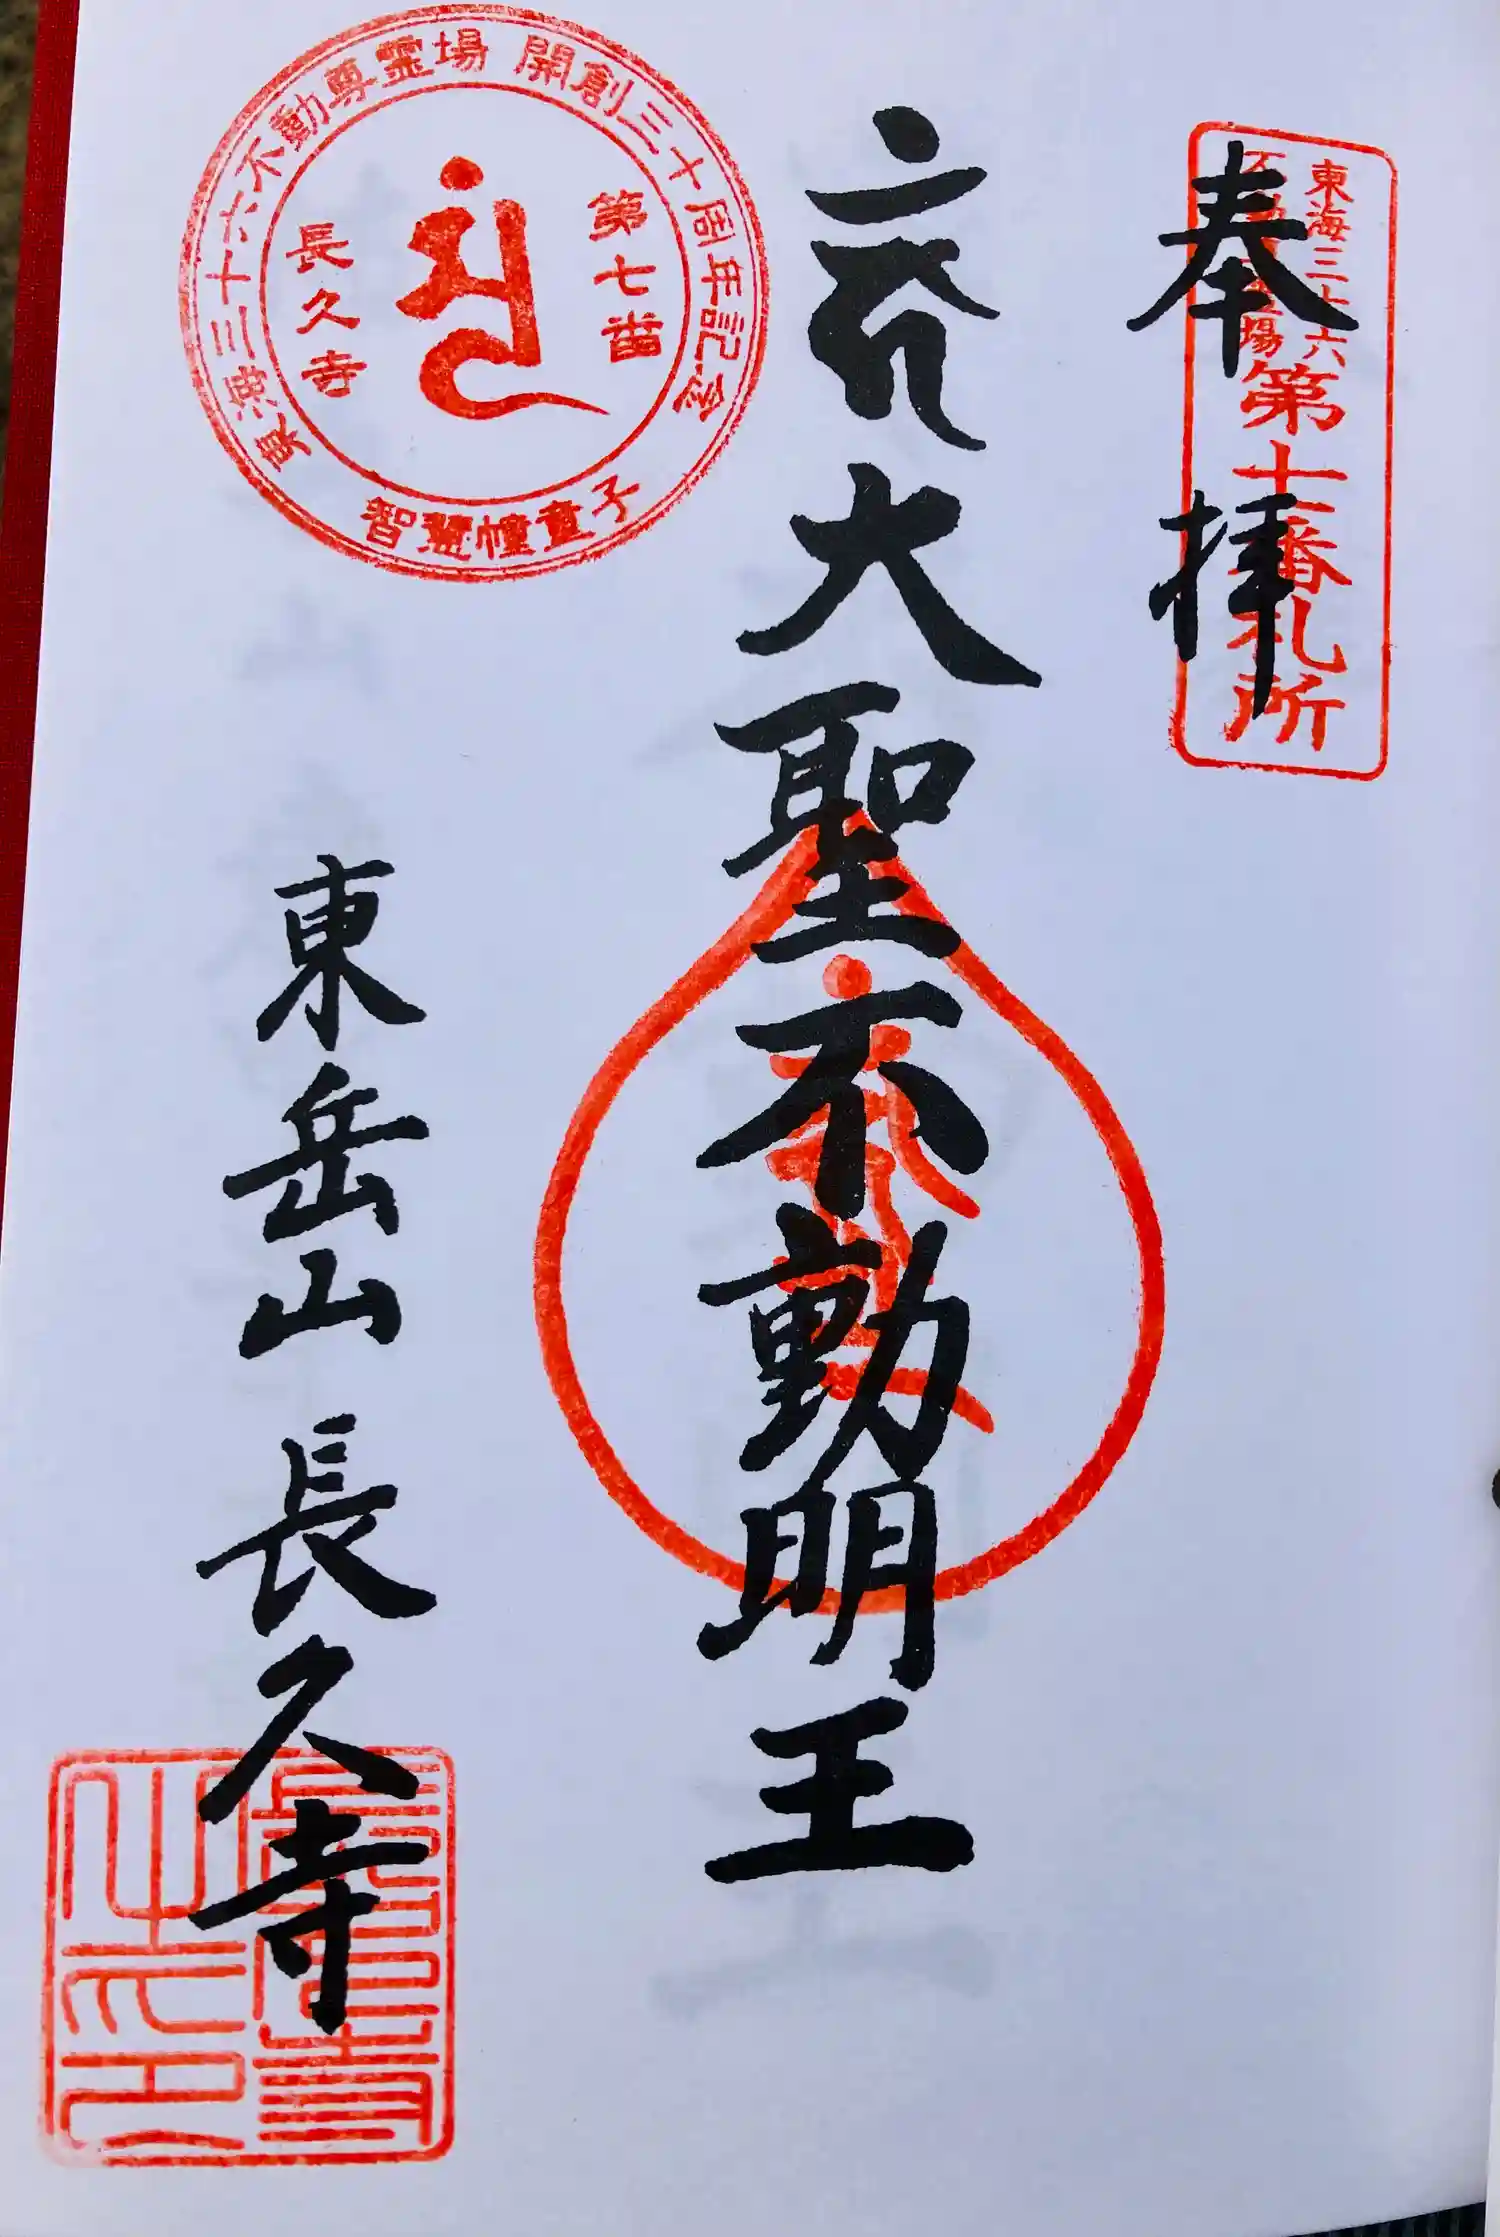 奉拝
東海三十六
第七番札所
大聖不動明王
東海三十六不動尊霊場 開創三十周年記念
第七番
長久寺
智慧幢童子
東岳山 長久寺